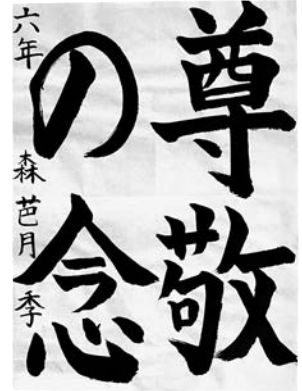 尊敬
の念
六年 森 芭月季